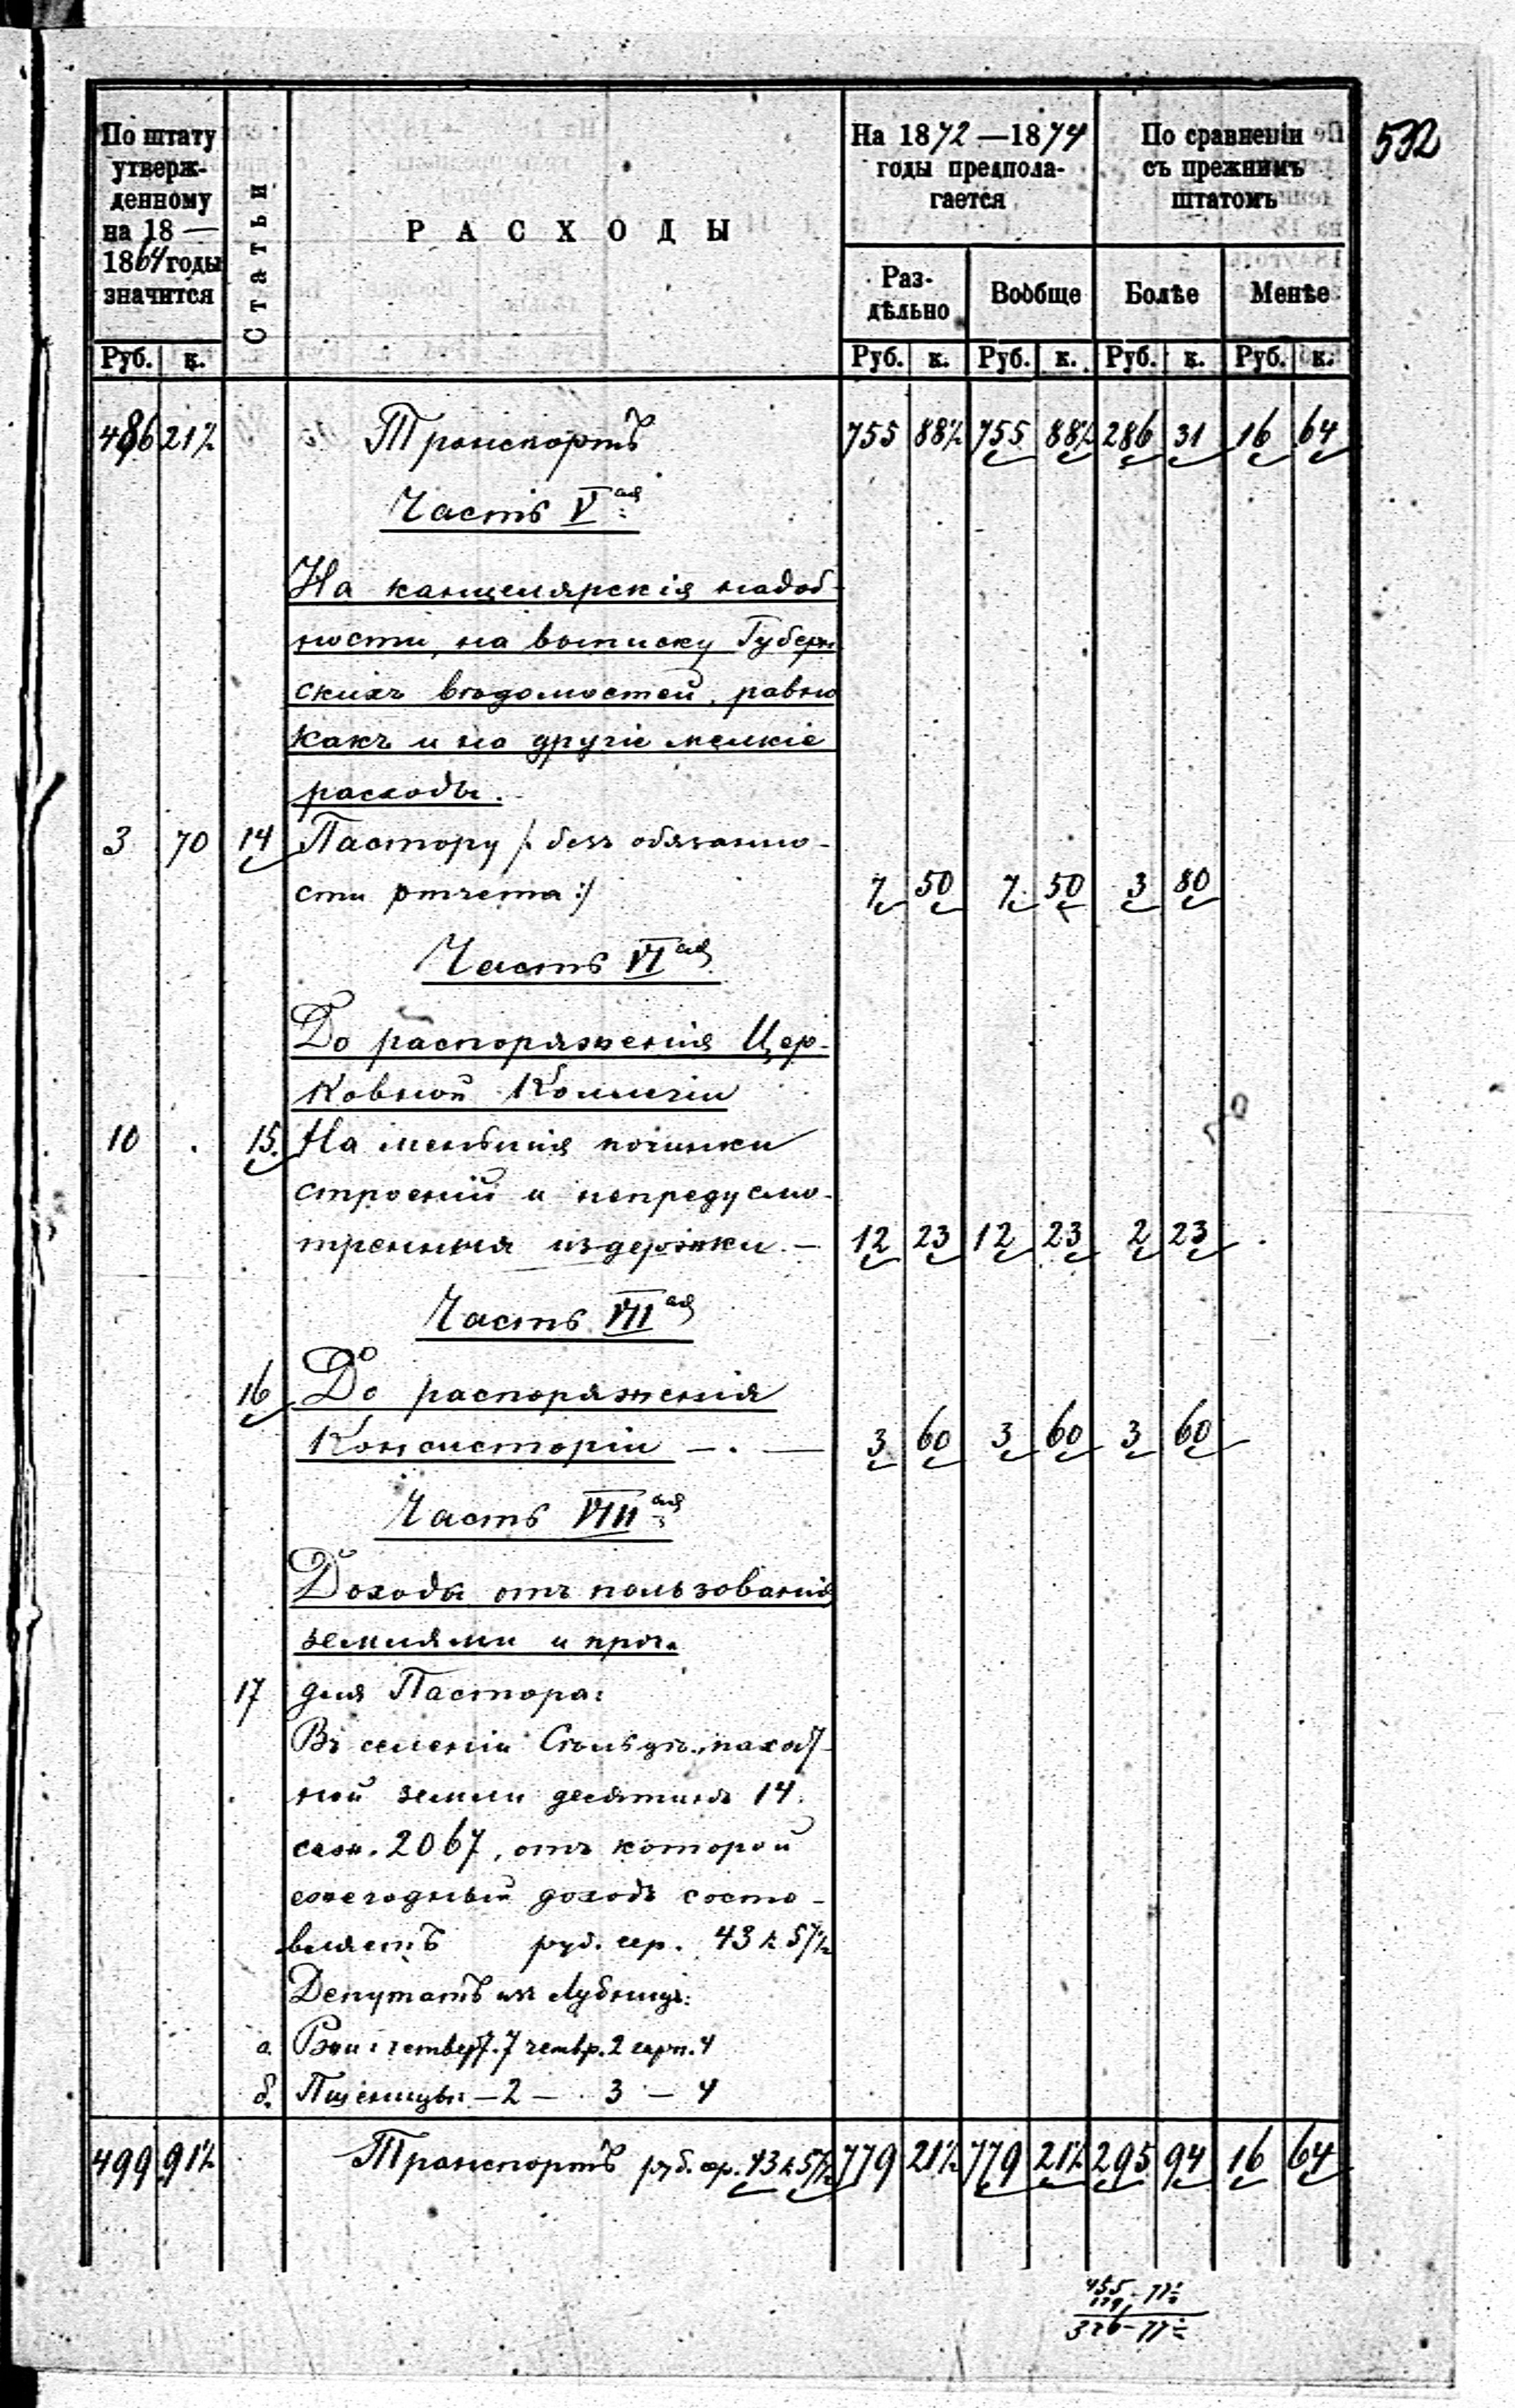 532
По штату утверж- денному на 18 — 1864 годы значится
Статьи
РАСХОДЫ
На 1872—1874 годы предпола- гается
По сравненіи съ прежнимъ штатомъ
Раз- дѣльно
Вообще
Болѣе
Менѣе
Руб. к. Руб. к. Руб. к. Руб. к. Руб. к.
486 21½ Транспортъ 755 88½ 755 88½ 286 31 16 64
Часть V ая
На канцелярскія надоб-
ности, на выписку Губерн
скихъ вѣдомостей, равно
какъ и на другіе мелкіе
расходы.
3 70 14 Пастору /: безъ обязанно-
сти отчета :/ 7 50 7 50 3 80
Часть VI ая
До распоряженія Цер-
ковной Коллегіи
10 . 15. На меньшія починки
строеній и непредусмо-
тренныя издержки. — 12 23 12 23 2 23
Часть VII ая
16 До распоряженія
Консисторіи — . — 3 60 3 60 3 60
Часть VIII ая
Доходы отъ пользованія
землями и проч.
17 для Пастора:
Въ селеніи пахат-
ной земли десятинъ 14.
саж. 2067, отъ которой
ежегодный доходъ соста-
вляетъ руб. сер. 43 к 57½
Депутатъ изъ
а. Ржи: четверт. 7 четвр. 2 гарн. 4
б. Пшеницы: — 2 — 3 — 4
499 91½ Транспортъ руб. сер. 43 к 57½ 779 21½ 779 21½ 295 94 16 64
455 - 77½
129
326 - 77½